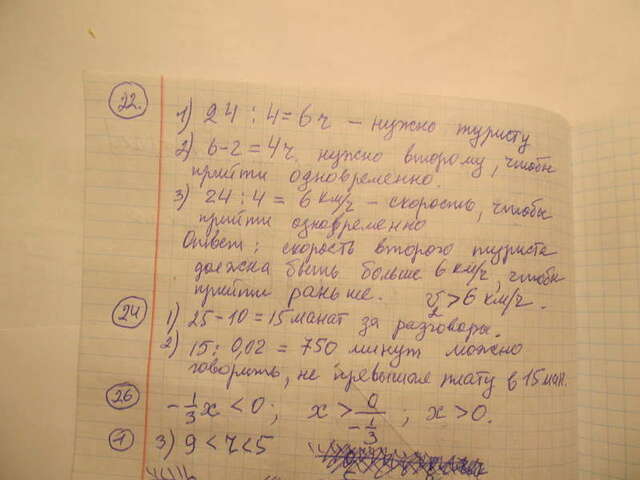 22.
1) 24 : 4 = 6 ч – нужно туристу
2) 6-2 = 4 ч нужно второму, чтобы
прийти одновременно.
3) 24 : 4 = 6 км/ч – скорость, чтобы
прийти одновременно
Ответ: скорость второго туриста
должна быть больше 6 км/ч, чтобы
прийти раньше. V₂ > 6 км/ч.
24 1) 25-10 = 15 манат за разговоры.
2) 15 : 0,02 = 750 минут можно
говорить, не превышая плату в 15 ман.
26 -1/3 x < 0; x > 0/(-1/3); x > 0.
1 3) 9 < 7 < 5